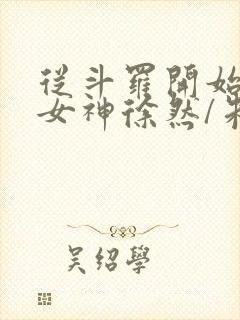 從斗羅開始
女神徐然/朱
吳紹學